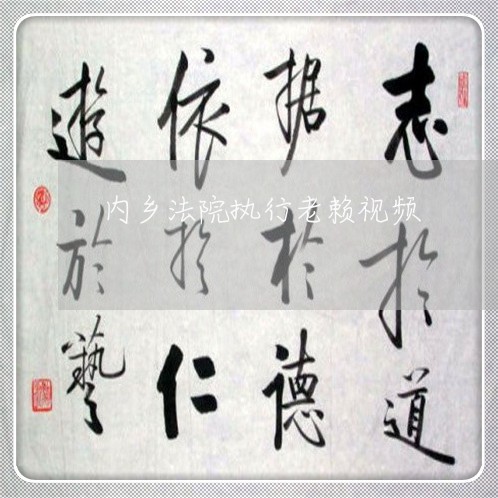 志於道
据於德
依於仁
遊於藝
内乡法院执行老赖视频